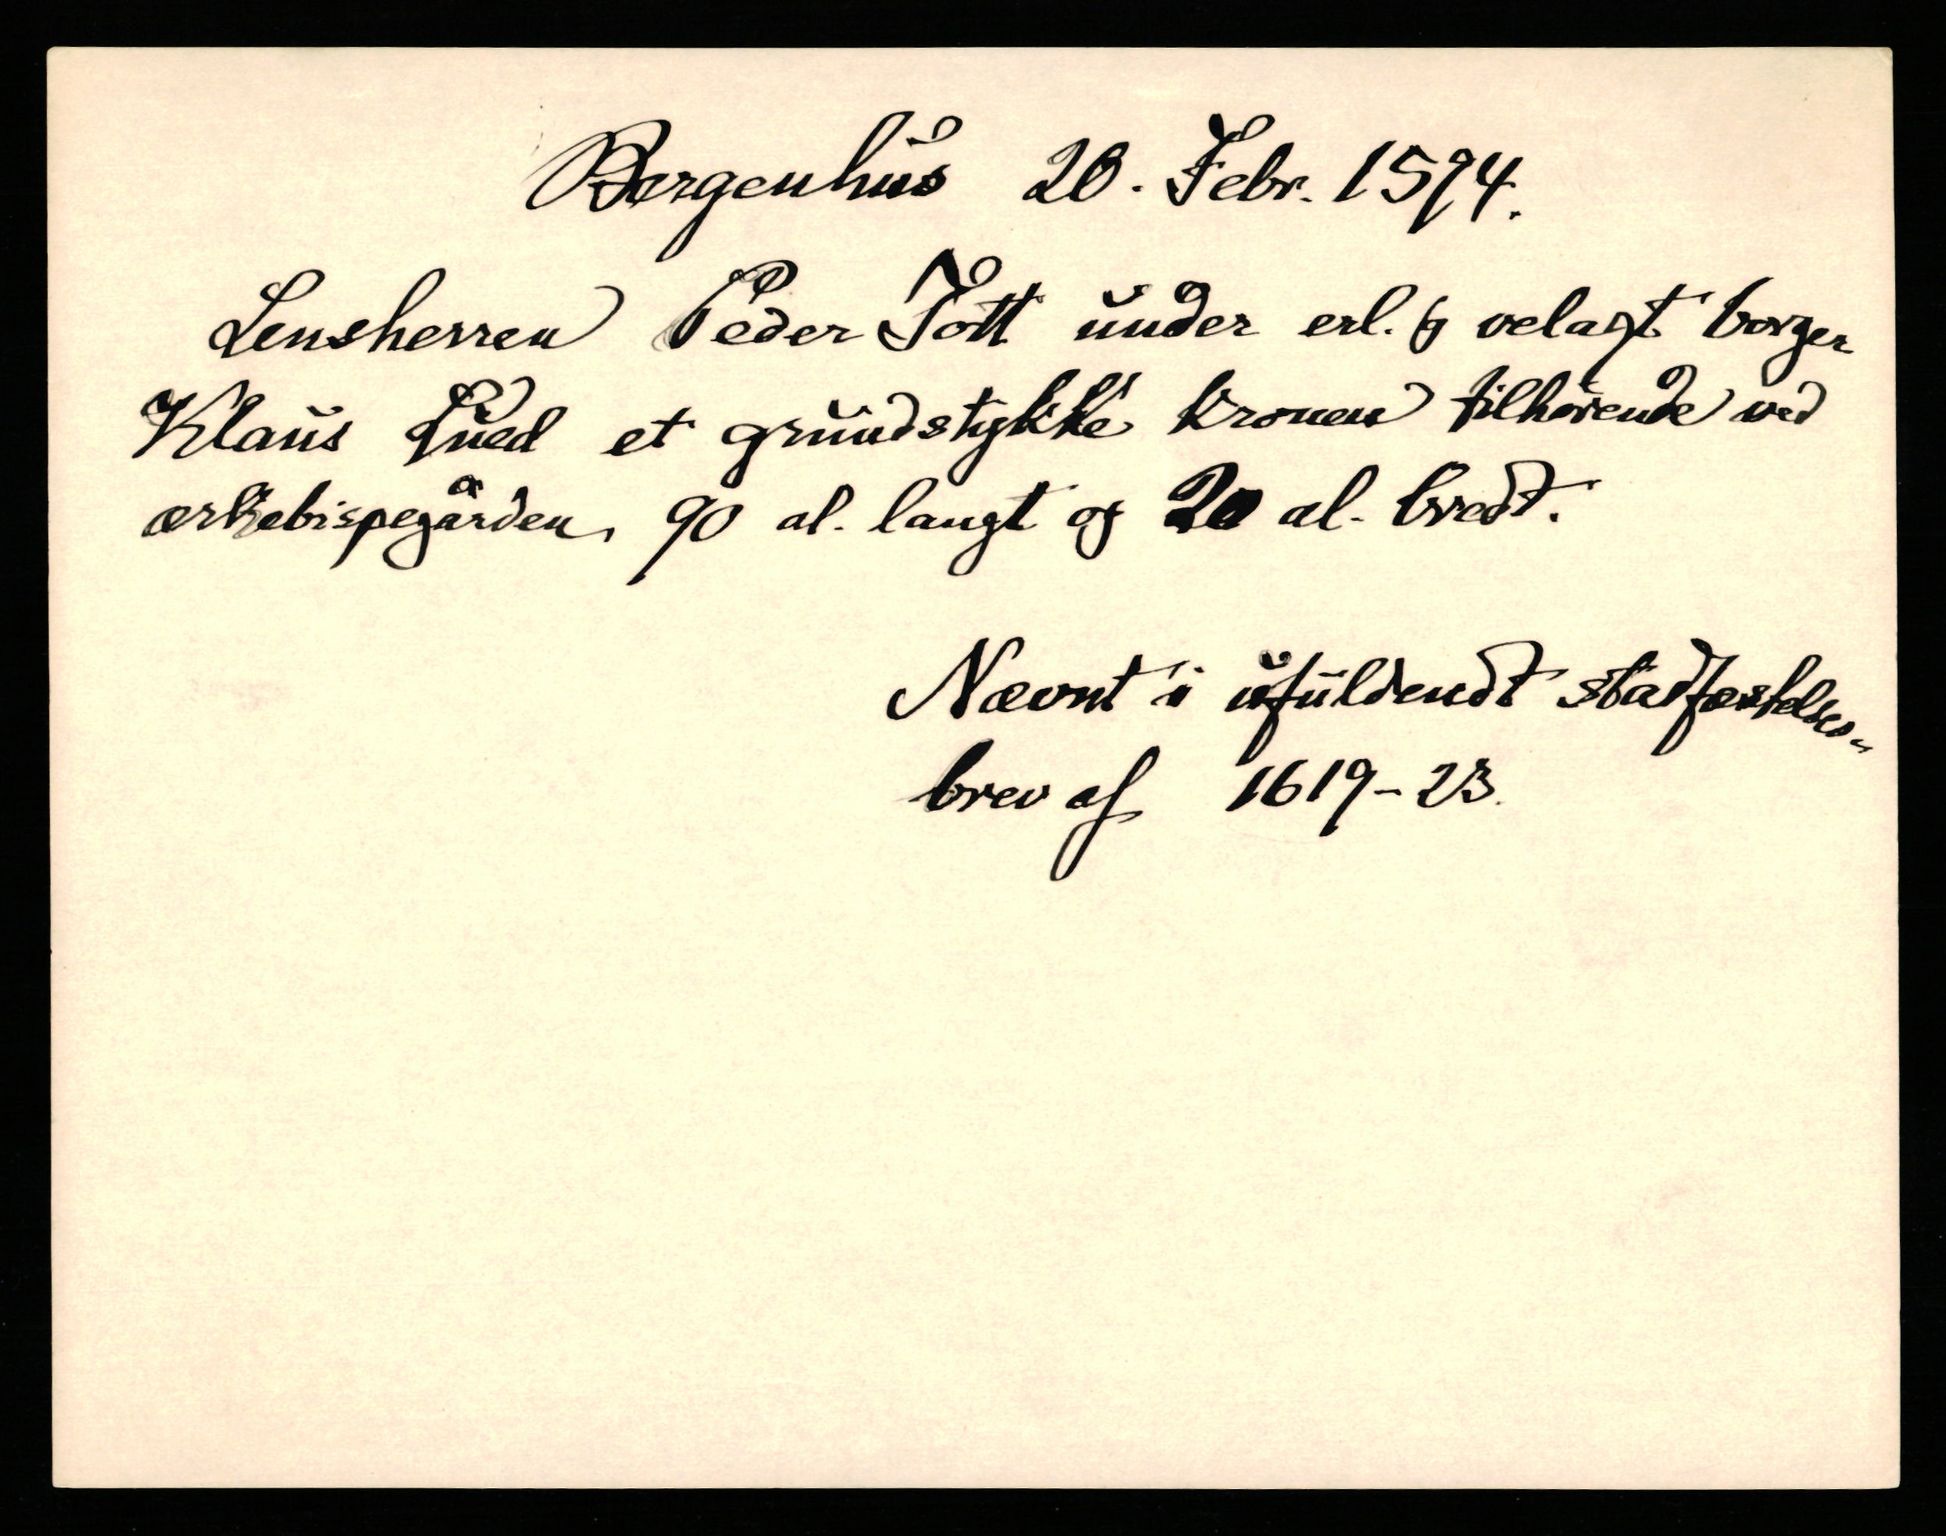 Bergenhus 20. Febr. 1594.
Lensherren Peder Tott under erl. og velagt borger
Klaus Lued et grundstykke kronen tilhørende ved
ærkebispegården, 90 al. langt og 20 al. bredt.
Nævnt i ufuldendt stadfæstelses-
brev af 1619-23.